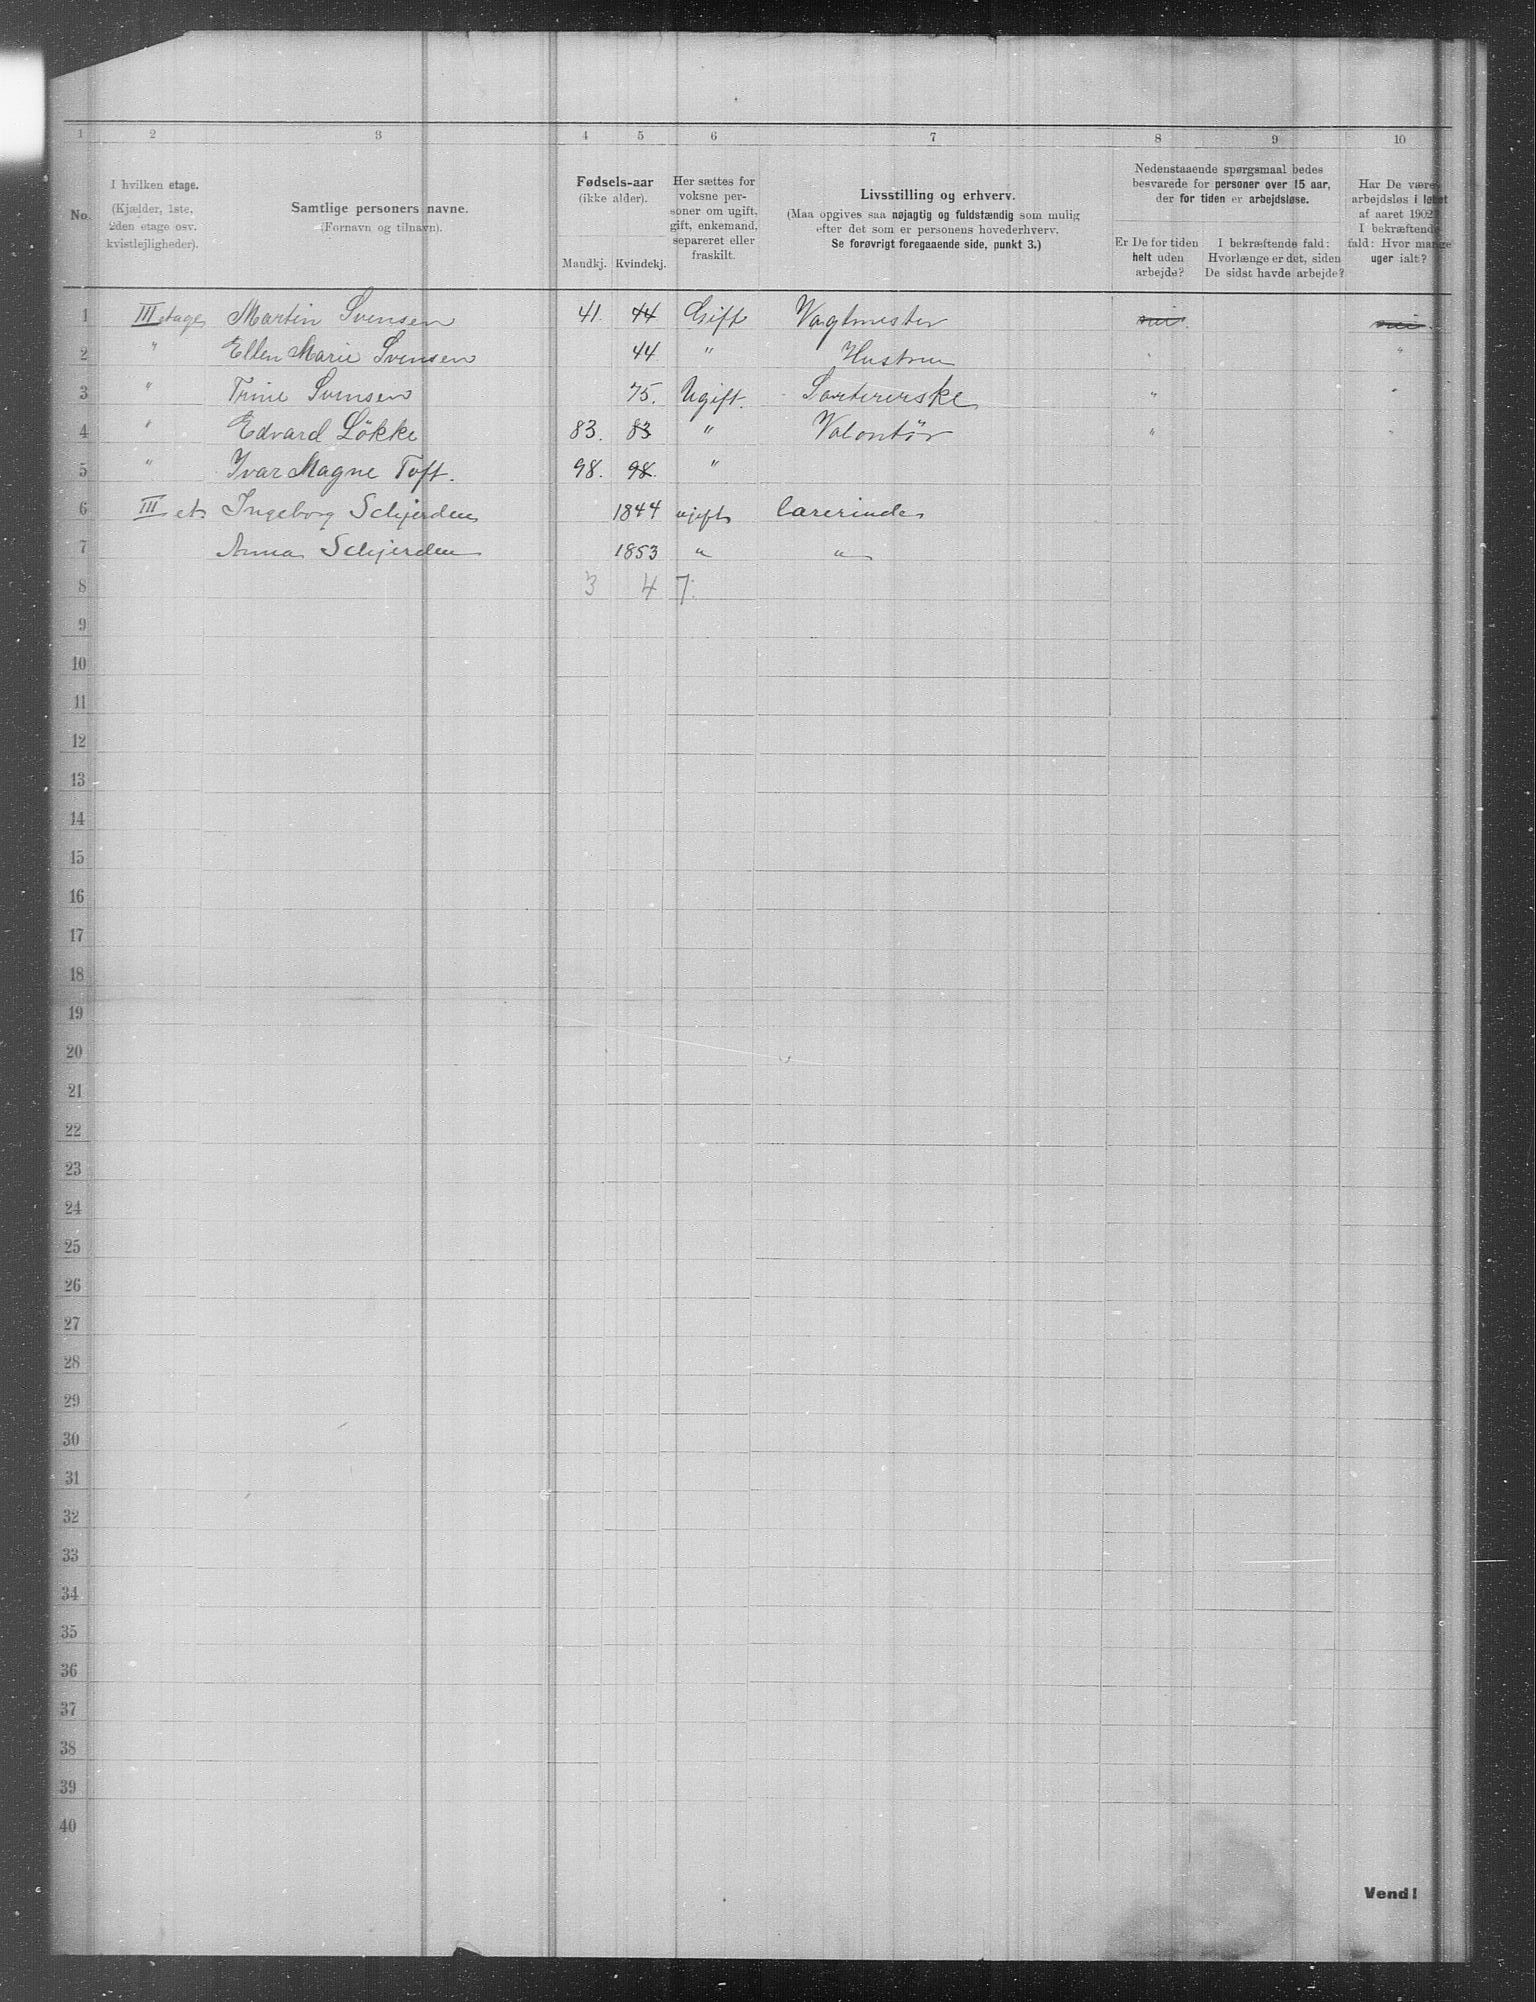 1 2 3 4 5 6 7 8 9 10
No.
I hvilken etage.
(Kjælder, 1ste,
2den etage osv.
kvistlejligheder).
Samtlige personers navne.
(Fornavn og tilnavn).
Fødsels-aar
(ikke alder).
Mandkj. Kvindekj.
Her sættes for
voksne per-
soner om ugift,
gift, enkemand,
separeret eller
fraskilt.
Livsstilling og erhverv.
(Maa opgives saa nøjagtig og fuldstændig som mulig
efter det som er personens hovederhverv.
Se forøvrigt foregaaende side, punkt 3.)
Nedenstaaende spørgsmaal bedes
besvarede for personer over 15 aar,
der for tiden er arbejdsløse.
Er De for tiden
helt uden
arbejde?
I bekræftende fald:
Hvorlænge er det, siden
De sidst havde arbejde?
Har De være
arbejdsløs i løbet
af aaret 1902?
I bekræftende
fald: Hvor mange
uger ialt?
1 III etage Martin Svensen 41. 44 Gift Vagtmester nei. nei.
2 " Ellen Marie Svensen 44 " Hustru " "
3 " Trine Svensen 75. Ugift. Sortererske " "
4 " Edvard Løkke 83. 83 " Volontør " "
5 " Ivar Magne Toft. 98. 98 "
6 III et Ingeborg Schjerden 1844 ugift Lærerinde
7 Anna Schjerden 1853 " "
8 3 4 7.
9
10
11
12
13
14
15
16
17
18
19
20
21
22
23
24
25
26
27
28
29
30
31
32
33
34
35
36
37
38
39
40
Vend!